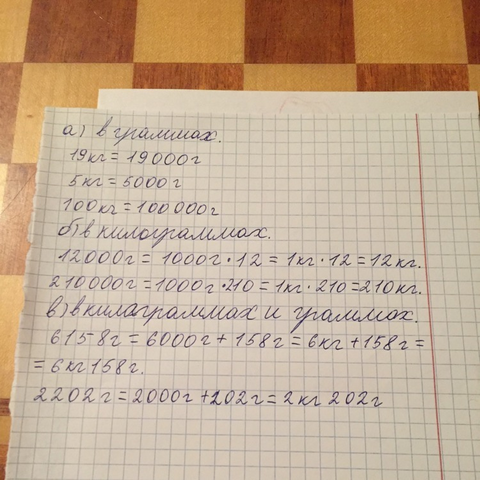 а) в граммах.
19кг = 19000г
5кг = 5000г
100кг = 100000г
б) в килограммах.
12000г = 1000г·12 = 1кг·12 = 12кг.
210000г = 1000г·210 = 1кг·210 = 210кг.
в) в килаграммах и граммах.
6158г = 6000г + 158г = 6кг + 158г =
= 6кг 158г.
2202г = 2000г + 202г = 2кг 202г